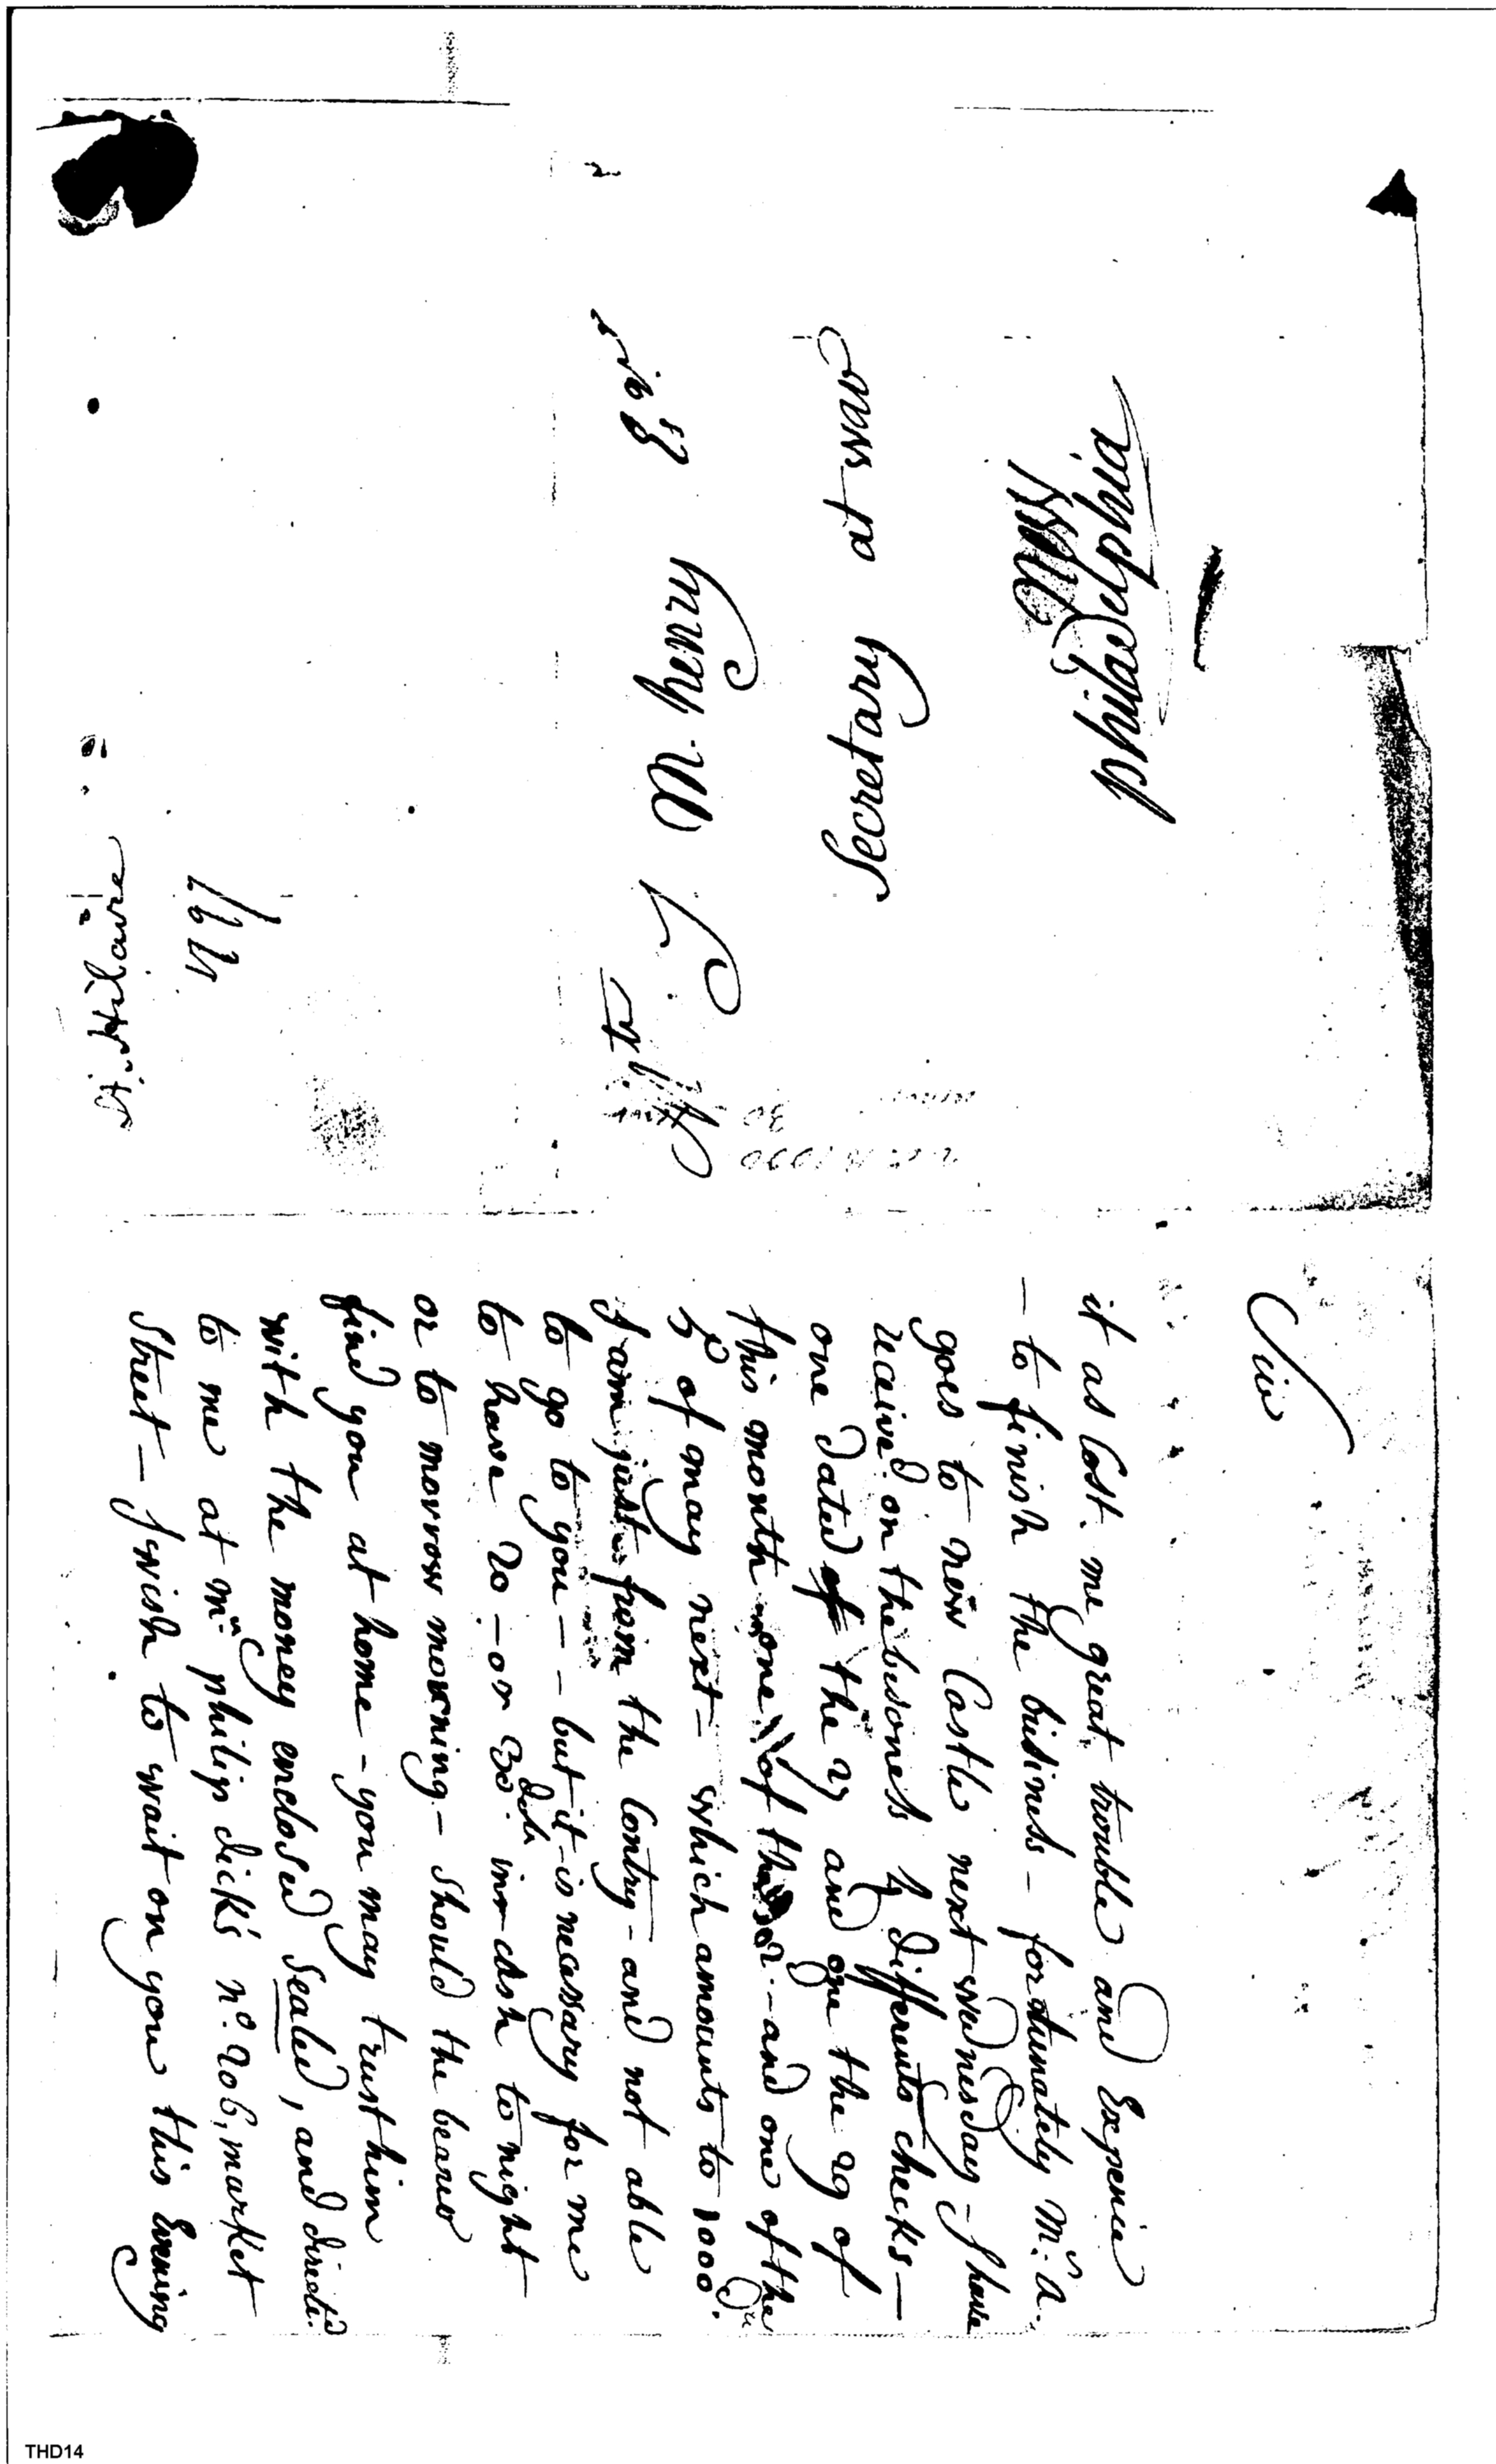 Sir
it as Cost me great trouble and Expence
- to finish the business - fortunately Mr. A.
goes to new Castle next wednesday - I have
received on the bisoness 4 differents checks -
one dated the 27 and one the 29 of
this month one of the 2. - and one of the
5 of may next - which amounts to 1000 Drs.
I am just from the Contry - and not able
to go to you - - but it is necessary for me
to have 20 - or 30 Dols in cash to night
or to morrow morning - Should the bearer
find you at home - you may trust him
with the money enclosed Sealed, and directed
to me at mr. philip dick's no. 206, market
Street - I wish to wait on you this Evening
St. Hilaire
Mc Henry
Secretary at war
philadelphia
2
THD14